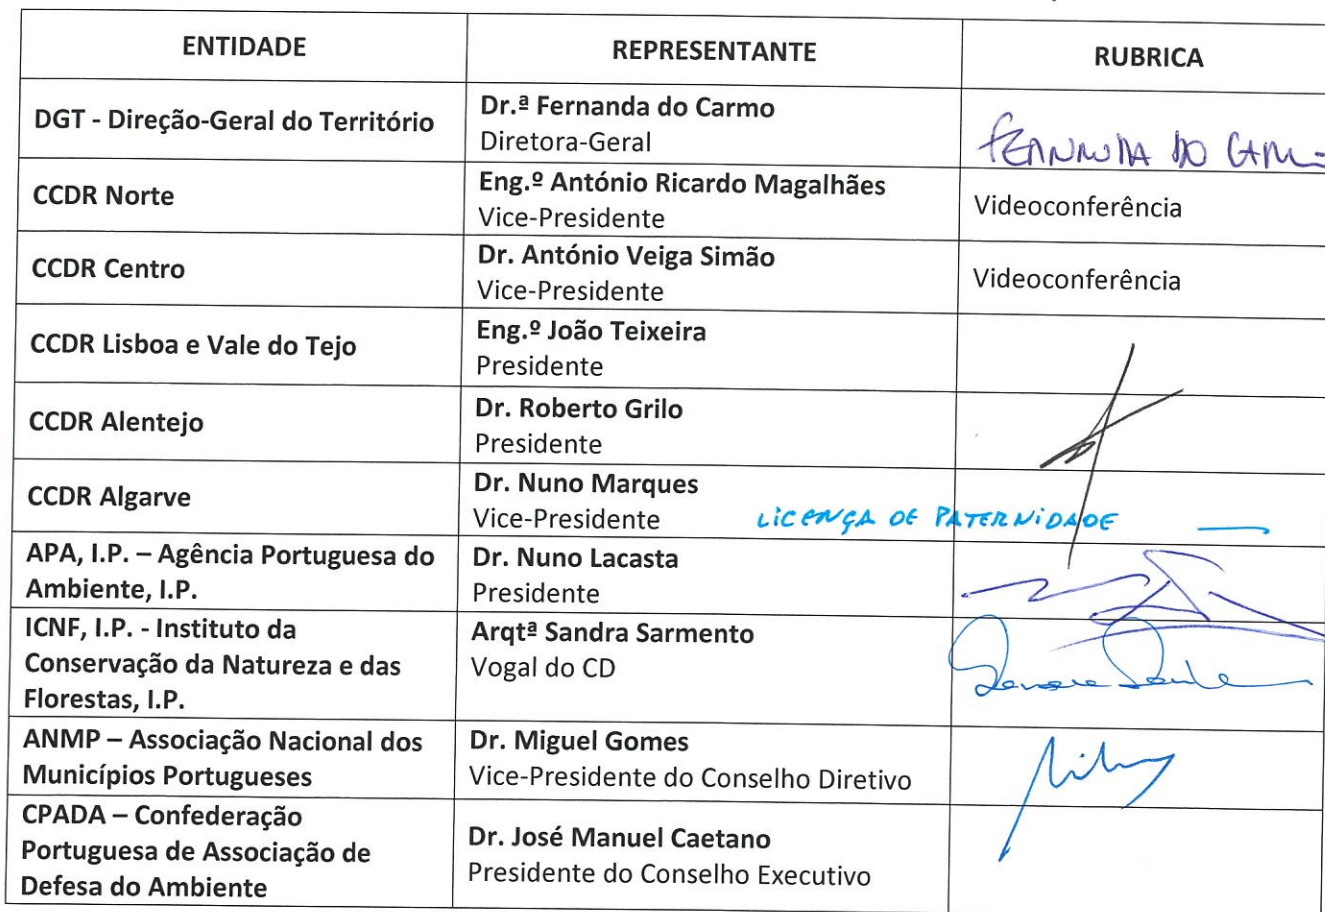 ENTIDADE REPRESENTANTE RUBRICA
DGT - Direção-Geral do Território
Dr.ª Fernanda do Carmo
Diretora-Geral
FERNANDA DO CARMO
CCDR Norte
Eng.º António Ricardo Magalhães
Vice-Presidente
Videoconferência
CCDR Centro
Dr. António Veiga Simão
Vice-Presidente
Videoconferência
CCDR Lisboa e Vale do Tejo
Eng.º João Teixeira
Presidente
CCDR Alentejo
Dr. Roberto Grilo
Presidente
CCDR Algarve
Dr. Nuno Marques
Vice-Presidente LICENÇA DE PATERNIDADE
APA, I.P. – Agência Portuguesa do
Ambiente, I.P.
Dr. Nuno Lacasta
Presidente
ICNF, I.P. - Instituto da
Conservação da Natureza e das
Florestas, I.P.
Arqtª Sandra Sarmento
Vogal do CD
ANMP – Associação Nacional dos
Municípios Portugueses
Dr. Miguel Gomes
Vice-Presidente do Conselho Diretivo
CPADA – Confederação
Portuguesa de Associação de
Defesa do Ambiente
Dr. José Manuel Caetano
Presidente do Conselho Executivo